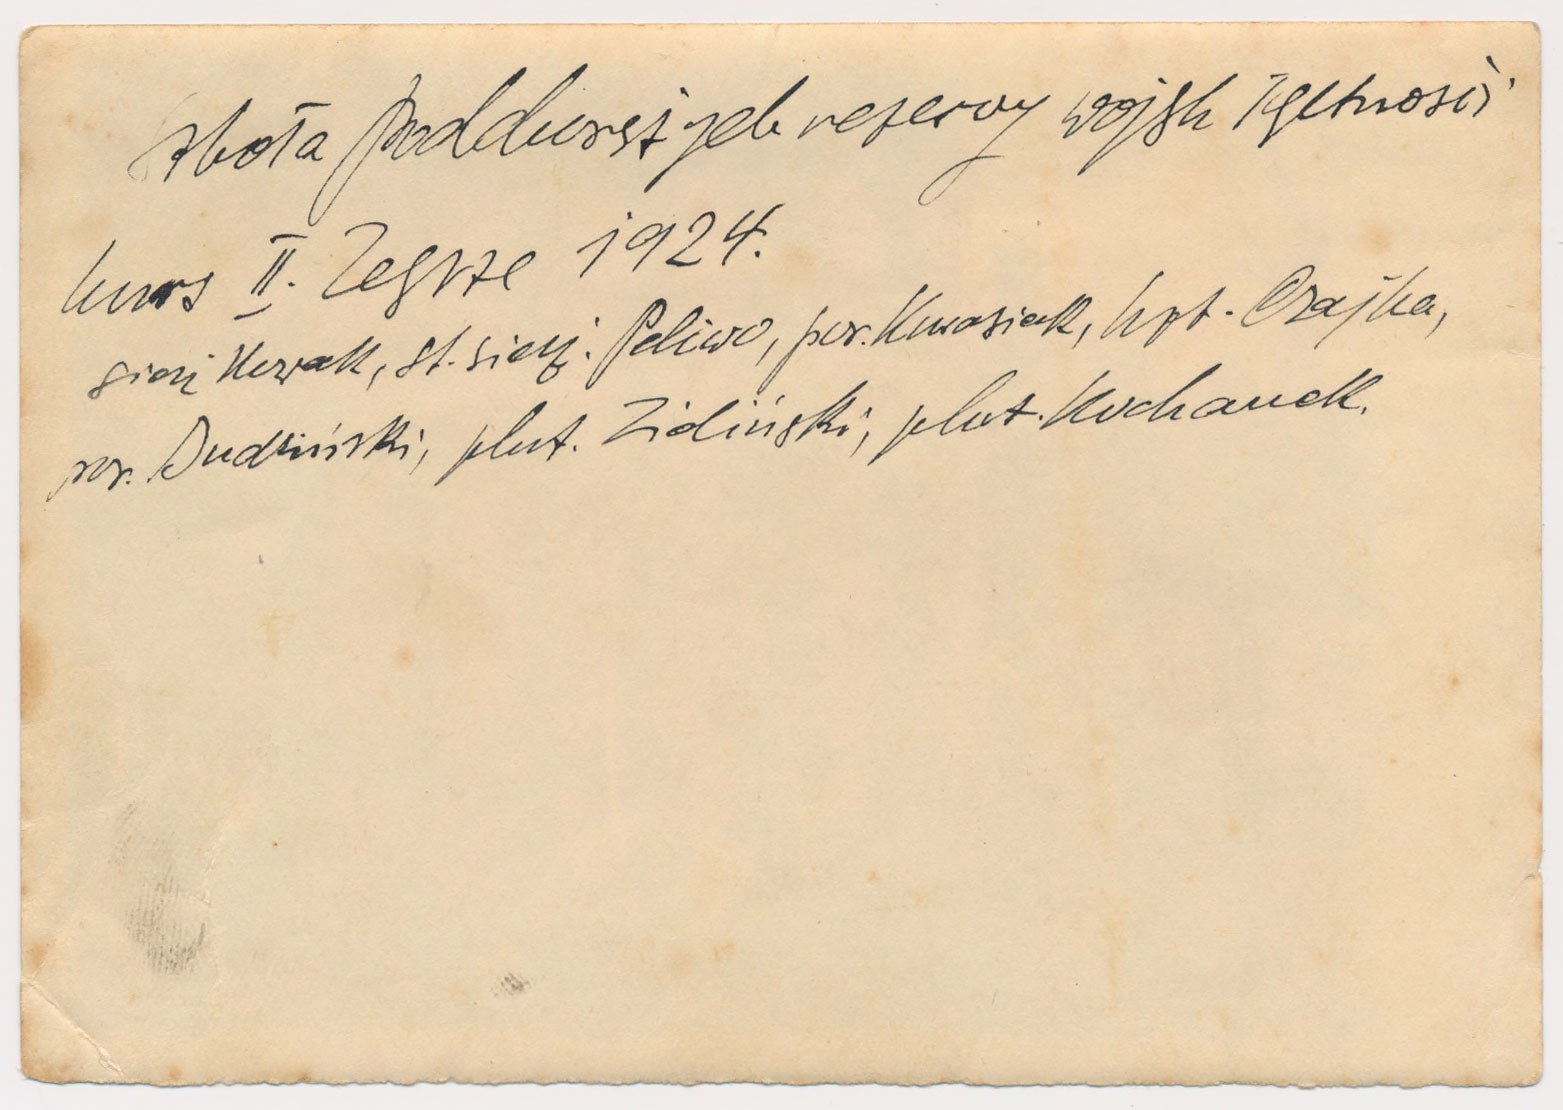 Szkoła Podchorążych rezerwy wojsk łączności
kurs II. Zegrze 1924.
sierż Nowak, st. sierż. Peliwo, por. Kwasiak, kpt. Czajka,
por. Dudziński, plut. Zieliński, plut. Kochanek.